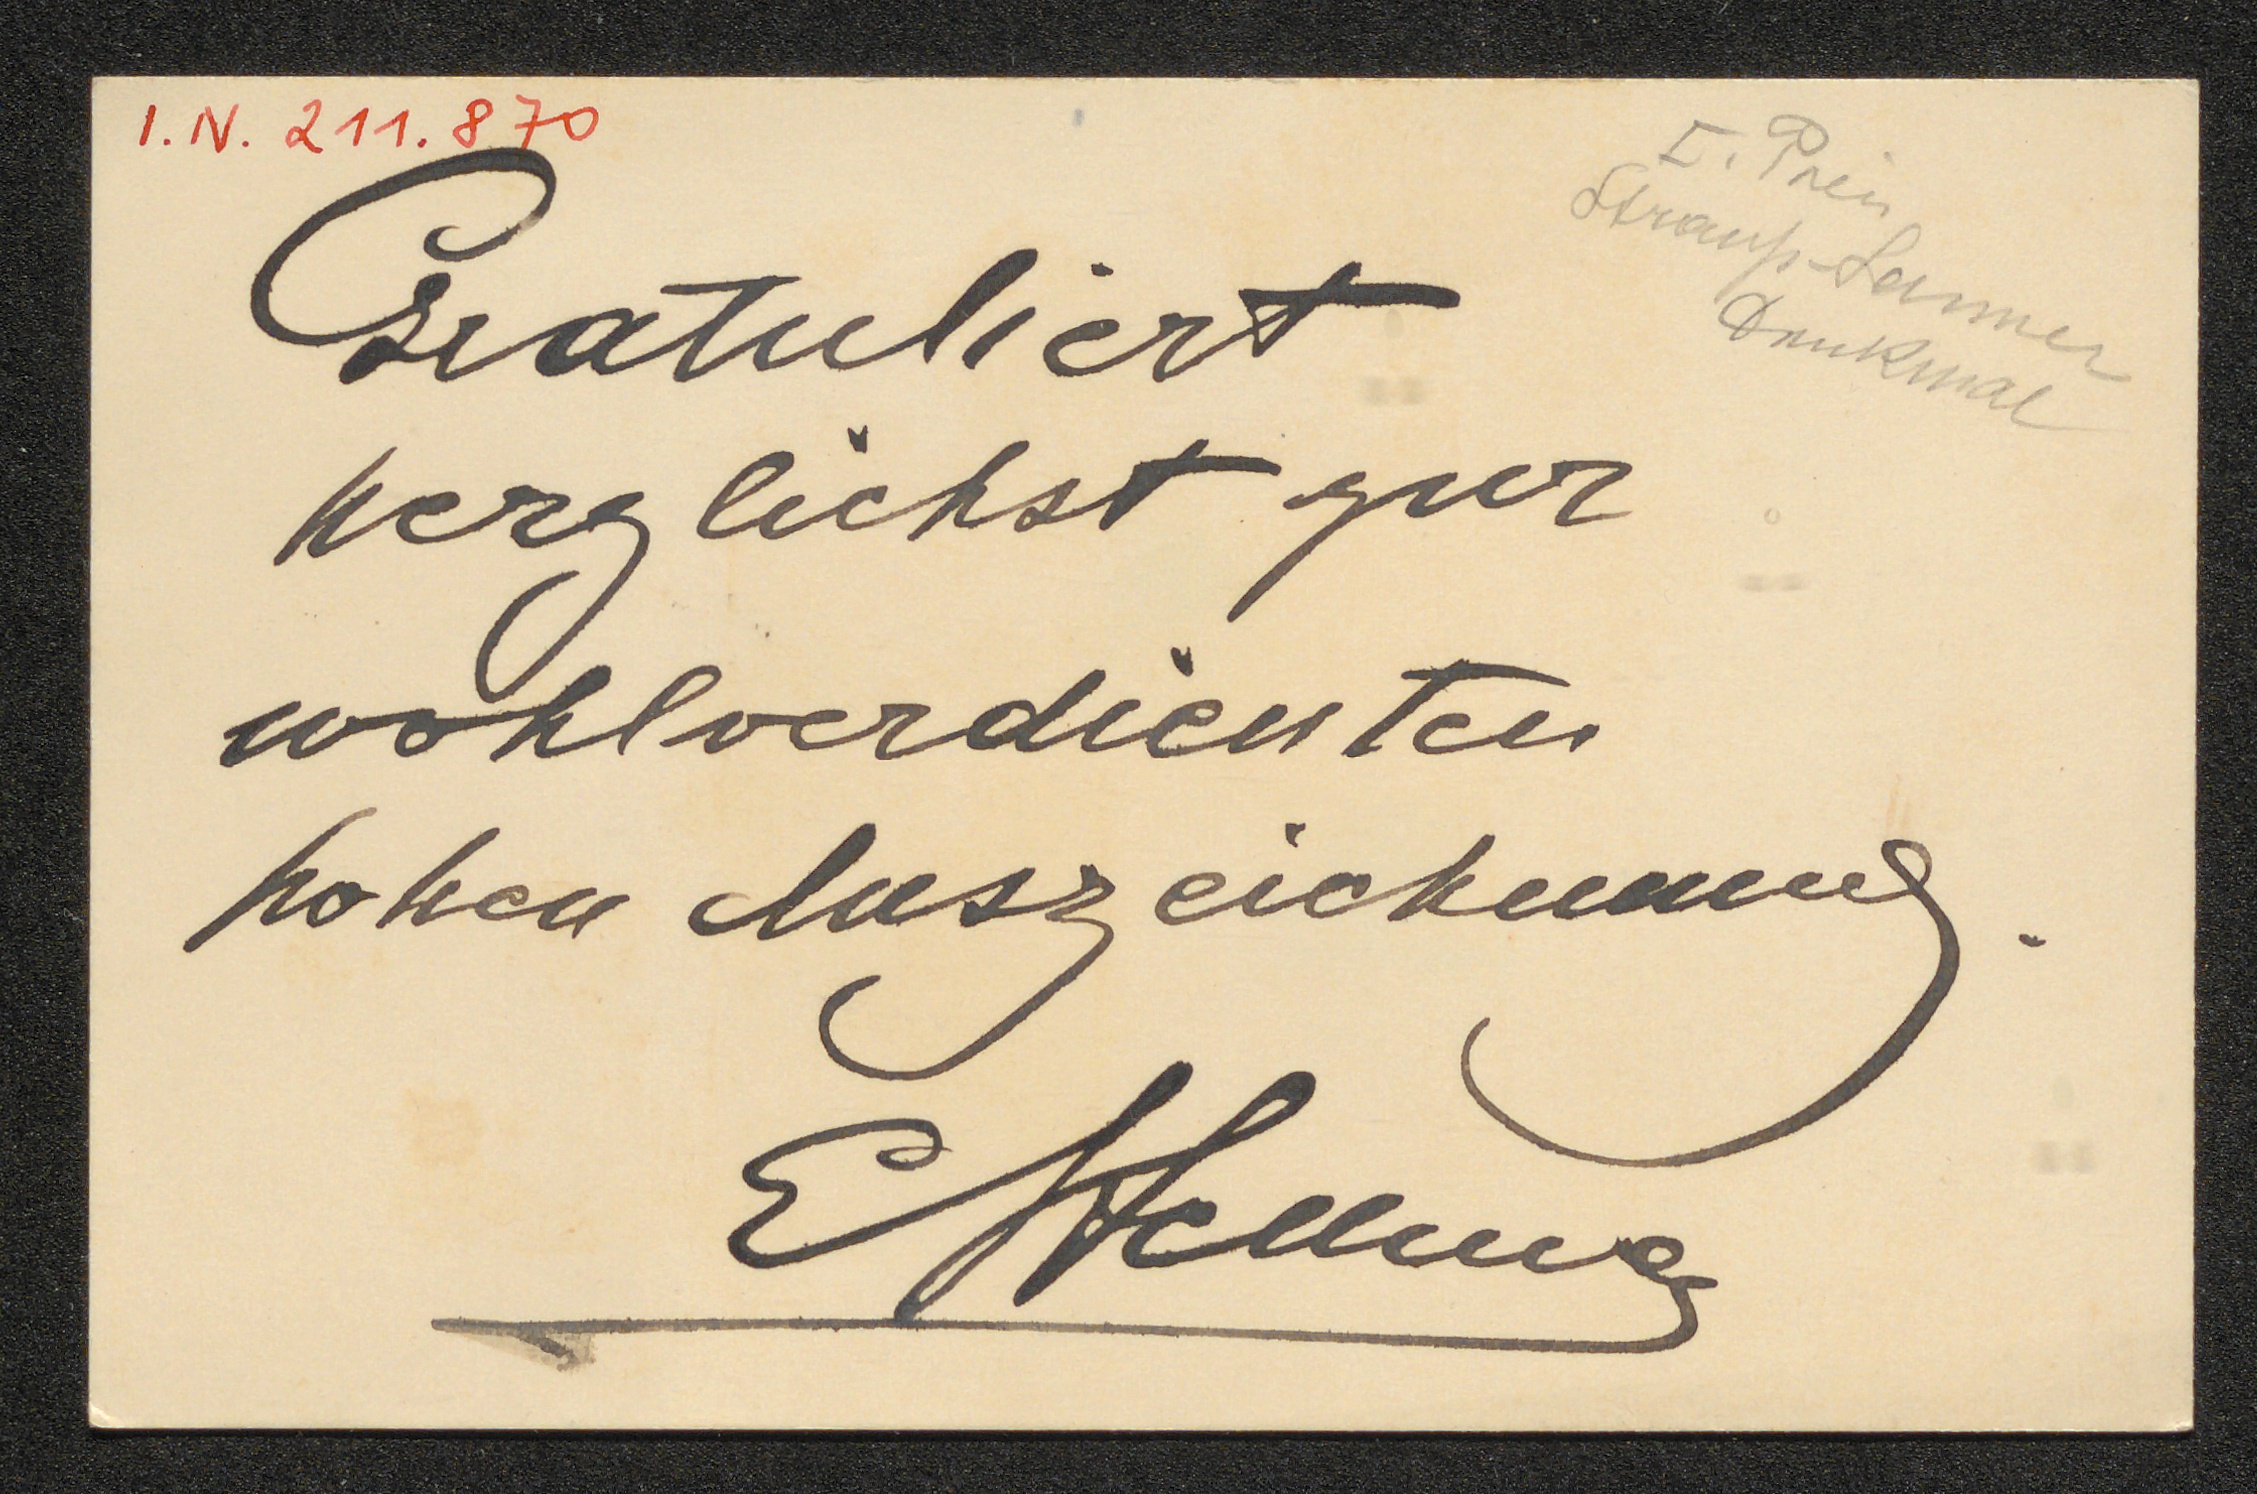 I.N. 211.870
I. Preis
Strauß-Lanner
Denkmal
Gratuliert
herzlichst zur
wohlverdienten
hohen Auszeichnung.
E Hellmer